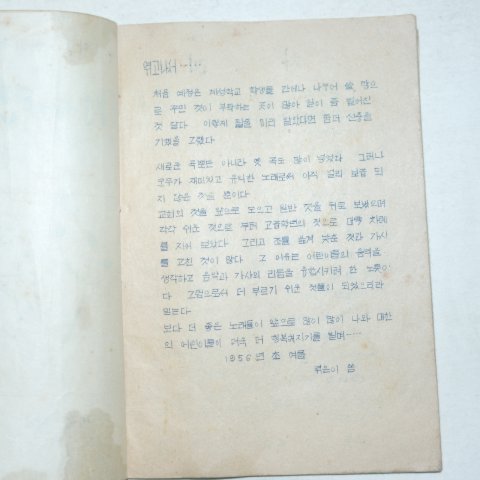 엮고나서
처음 예정은 계성학교 학생들 간에나 나누어 볼 양으
로 꾸민 것이 부탁하는 곳이 많아 일이 좀 벌어진
것 같다 이렇게 될줄 미리 알았다면 좀더 신중을
기했을 것
새로운 곡뿐만 아니라 옛 곡도 많이 넣었다 그러나
모두가 재미있고 유익한 노래로써 아직 널리 보급 되
지 않은 것들 뿐이다
교회의 것을 앞으로 모으고 일반 것을 뒤로 보냈으며
각각 쉬운 것으로 부터 고등학년의 것으로 대강 차례
를 지어 보았다 그리고 조를 옮겨 낮춘 것과 가사
를 고친 것이 많다 그 이유는 어린이들의 음역을
생각하고 음악과 가사의 리듬을 융합시키려 한 노릇이
다 그럼으로써 더 부르기 쉬운 것들이 되었으리라
믿는다
보다 더 좋은 노래들이 앞으로 많이 많이 나와 대한
의 어린이들이 더욱 더 행복해지기를 빌며……
1956년 초 여름
엮은이 씀